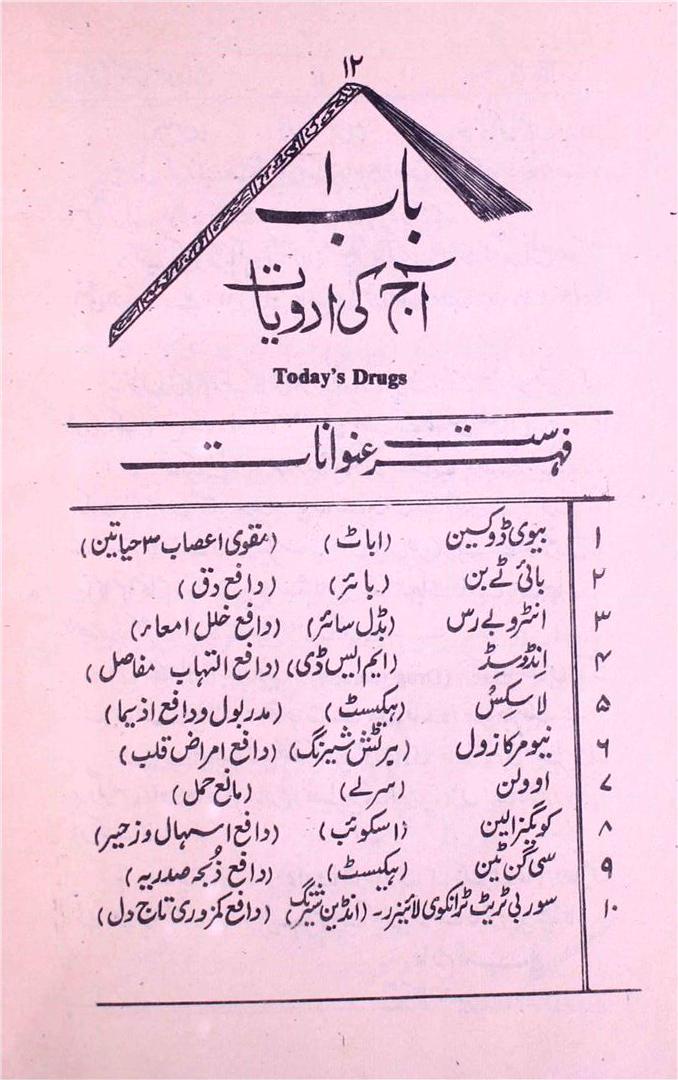 ۱۲
باب ۱
آج کی ادویات
Today's Drugs
فہرست عنوانات
۱ بیوی ڈوکسین (اباٹ) (مقوی اعصاب ۳ حیاتین)
۲ بائی ٹے بن (بائر) (دافع دق)
۳ انٹرو بے رس (بڈل سائر) (دافع خلل امعاء)
۴ انڈوسڈ (ایم ایس ڈی) (دافع التہاب مفاصل)
۵ لاسکس (ہیکسٹ) (مدر بول و دافع اذیما)
۶ نیو مرکازول (برٹش شیرنگ) (دافع امراض قلب)
۷ اوولن (سرلے) (مانع حمل)
۸ کوبگنزالین (اسکوئب) (دافع اسہال و زحیر)
۹ سی گن ٹین (ہیکسٹ) (دافع ذبحہ صدریہ)
۱۰ سوربی ٹریٹ ٹرانکوی لائیزر۔ (انڈین شیرنگ) (دافع کمزوری تاج دل)